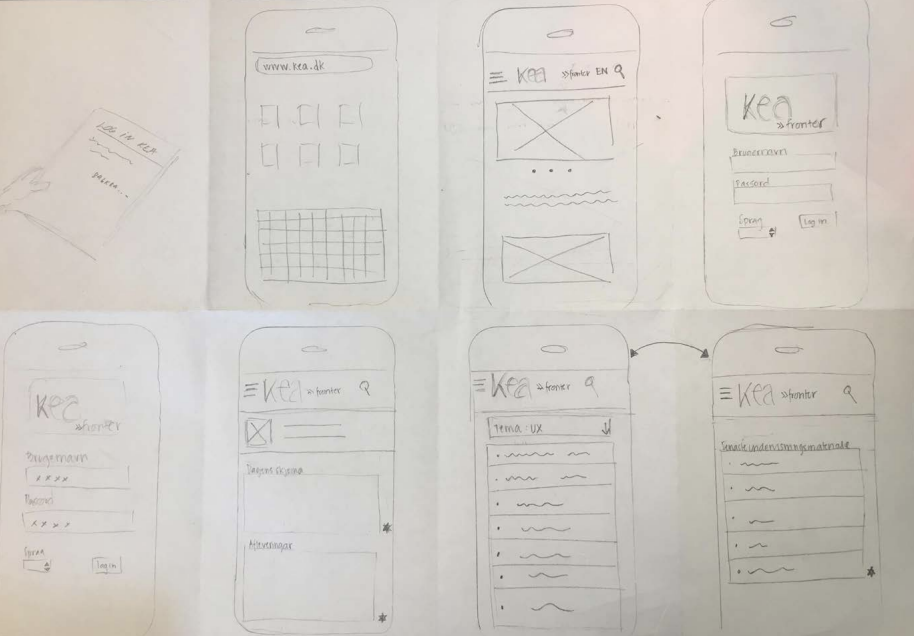 LOG IN KEA
www.kea.dk
kea »fronter EN
kea
»fronter
Brugernavn
Passord
Språg
Log in
kea
»fronter
Brugernavn
xxxx
Passord
xxxx
Språg
Log in
kea »fronter
Dagens skjema
Afleveringar
kea »fronter
Tema: UX
kea »fronter
Senaste undervisningsmateriale